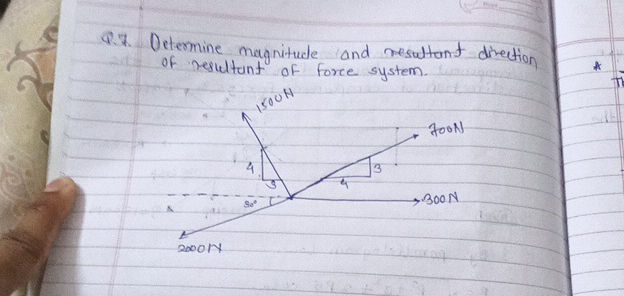 Q.7. Determine magnitude and resultant direction
of resultant of force system.
1500N
700N
4
3
3
4
300N
30°
2000N